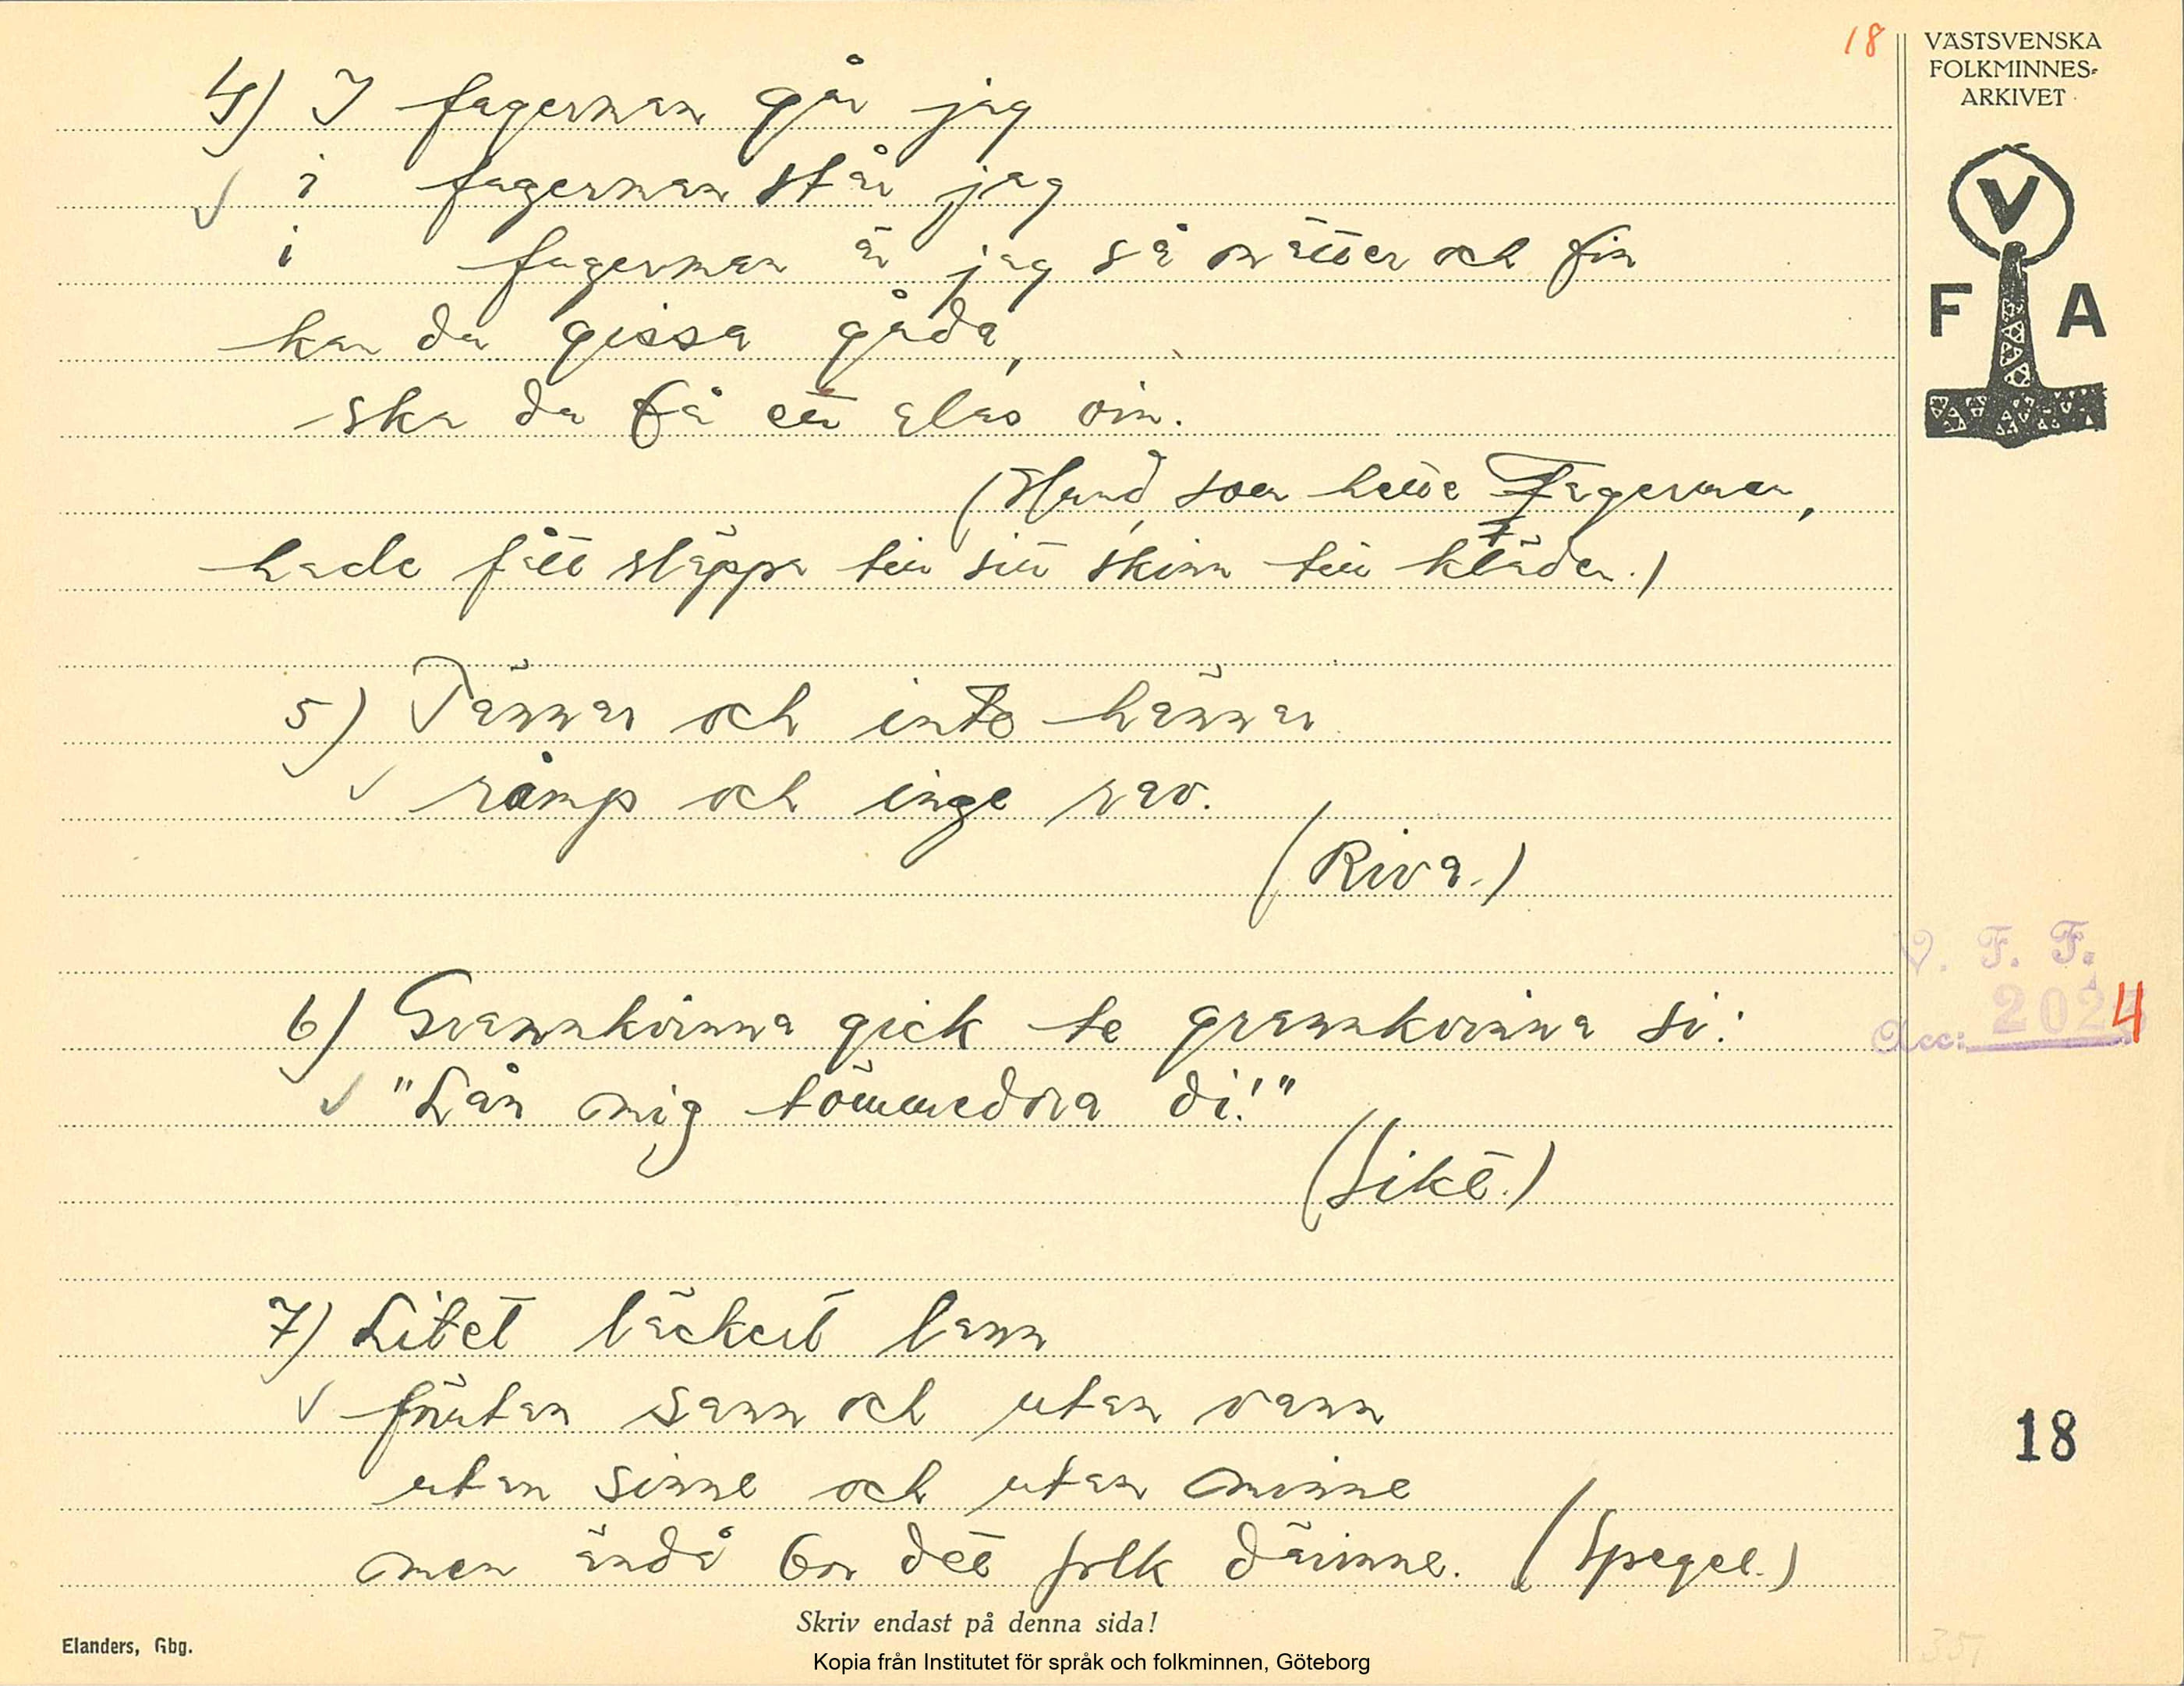 18
VÄSTSVENSKA
FOLKMINNES-
ARKIVET
V
F A
4) I fagerman går jag
i fagerman står jag
i fagerman är jag så nätter och fin
kan du gissa gåda,
ska du få ett glas vin.
(Hund, som hette Fagerman,
hade fått släppa till sitt skinn till kläder.)
5) Tännar och inte hännar
rämp och inge rav.
(Riva.)
6) Grannkvinna gick te grannkvinna si:
"Lån mig tömmedora di!"
7) Litet läckert lann
förutan sann och utan vann
utan sinne och utan minne
men ändå bor det folk därinne. (Spegel.)
V. F. F.
Acc: 2024
18
Skriv endast på denna sida!
Elanders, Gbg.
Kopia från Institutet för språk och folkminnen, Göteborg